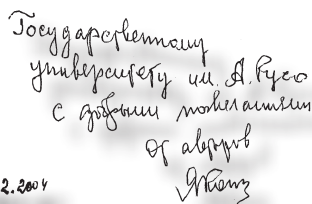 Государственному
университету им. А. Руссо
с добрыми пожеланиями
от авторов
2.2004